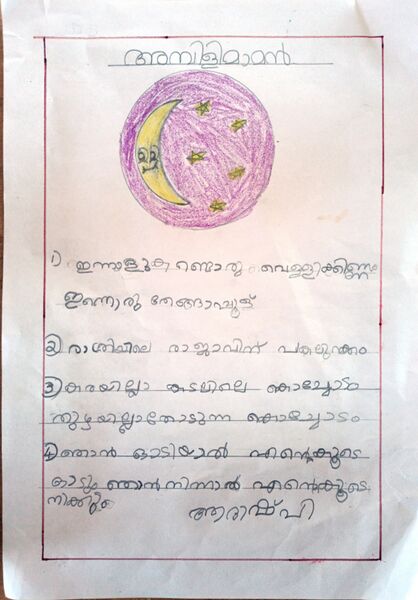 അമ്പിളിമാമൻ
1) ഇന്നാളുക ണ്ടൊരു വെള്ളിക്കിണ്ണം
ഇന്നൊരു തേങ്ങാപ്പൂള്
2) രാത്രിയിലെ രാജാവിന് പകലുറക്കം
3) കരയില്ലാ കടലിലെ കൊച്ചോടം
തുഴയില്ലാതോടുന്ന കൊച്ചോടം
4) ഞാൻ ഓടിയാൽ എന്റെക്കൂടെ
ഓടും ഞാൻ നിന്നാൽ എന്റെക്കൂടെ
നിക്കും
ആരിഷ് പി